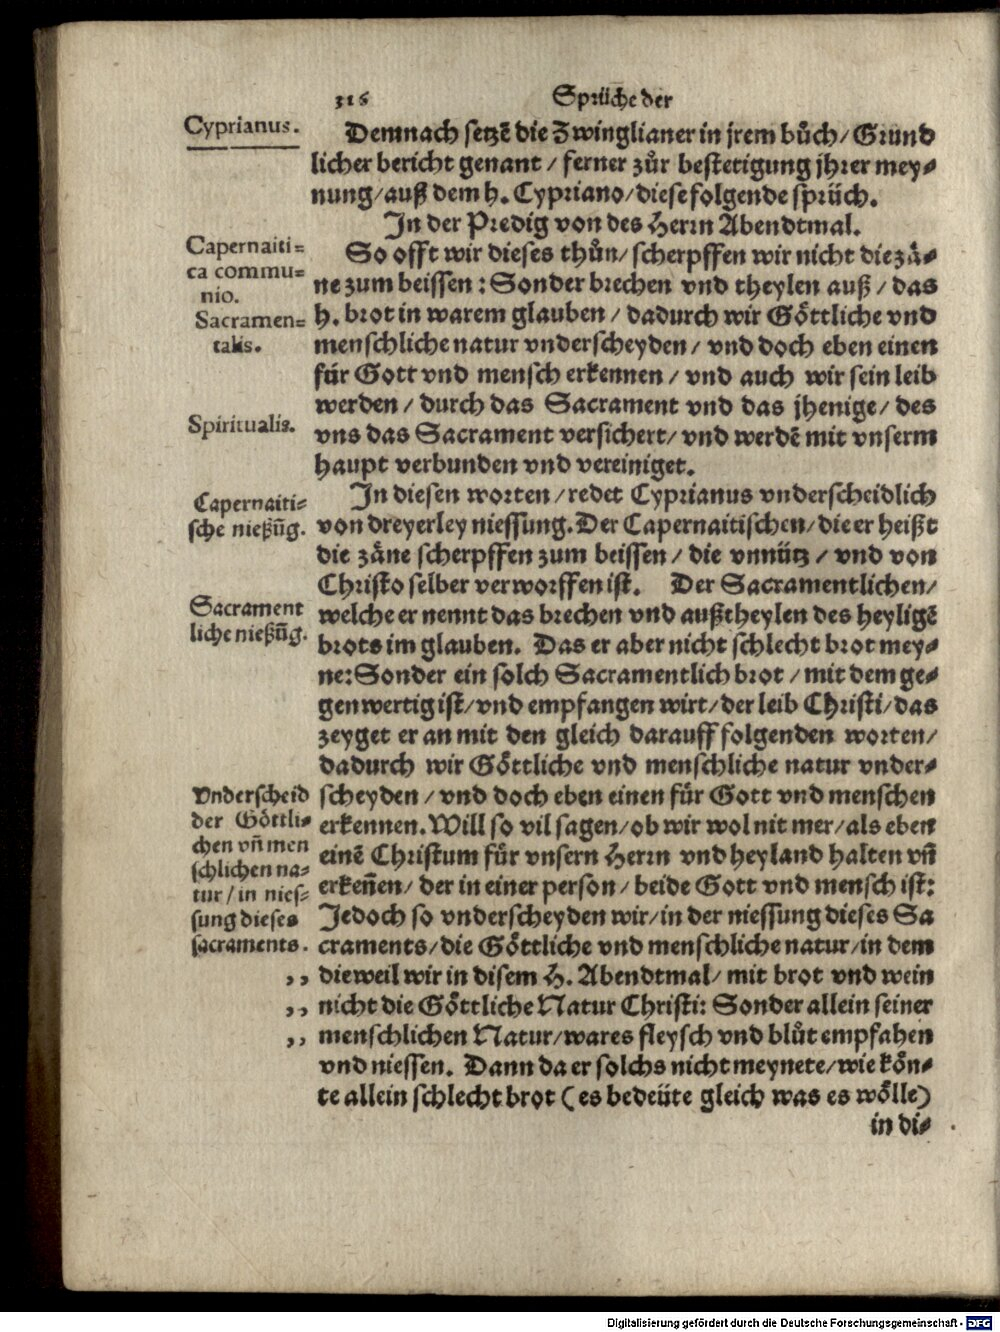 316 Sprüche der
Cyprianus.
Demnach setzē die Zwinglianer in jrem bůch/ Gründ
licher bericht genant / ferner zůr bestetigung jhrer mey⸗
nung/ auß dem h. Cypriano/ diese folgende sprüch.
In der Predig von des Herrn Abendtmal.
Capernaiti⸗
ca commu⸗
nio.
Sacramen⸗
talis.
So offt wir dieses thůn/ scherpffen wir nicht die zå⸗
ne zum beissen : Sonder brechen vnd theylen auß / das
h. brot in warem glauben / dadurch wir Göttliche vnd
menschliche natur vnderscheyden / vnd doch eben einen
für Gott vnd mensch erkennen / vnd auch wir sein leib
werden / durch das Sacrament vnd das jhenige/ des
Spiritualis.
vns das Sacrament versichert/ vnd werdē mit vnserm
haupt verbunden vnd vereiniget.
Capernaiti⸗
sche nießūg.
In diesen worten / redet Cyprianus vnderscheidlich
von dreyerley niessung. Der Capernaitischen/ die er heißt
die zåne scherpffen zum beissen / die vnnütz / vnd von
Christo selber verworffen ist. Der Sacramentlichen/
Sacrament
liche nießūg.
welche er nennt das brechen vnd außtheylen des heyligē
brots im glauben. Das er aber nicht schlecht brot mey⸗
ne: Sonder ein solch Sacramentlich brot / mit dem ge⸗
genwertig ist/ vnd empfangen wirt/ der leib Christi/ das
zeyget er an mit den gleich darauff folgenden worten/
dadurch wir Göttliche vnd menschliche natur vnder⸗
Vnderscheid
der Göttli⸗
chen vn̄ men
schlichen na⸗
tur / in nies⸗
sung dieses
sacraments.
scheyden / vnd doch eben einen für Gott vnd menschen
erkennen. Will so vil sagen/ ob wir wol nit mer/ als eben
einē Christum für vnsern Herrn vnd heyland halten vn̄
erken̄en/ der in einer person / beide Gott vnd mensch ist:
Jedoch so vnderscheyden wir/ in der niessung dieses Sa
craments/ die Göttliche vnd menschliche natur/ in dem
,, dieweil wir in disem H. Abendtmal/ mit brot vnd wein
,, nicht die Göttliche Natur Christi: Sonder allein seiner
,, menschlichen Natur/ wares fleysch vnd blůt empfahen
vnd niessen. Dann da er solchs nicht meynete/ wie kön⸗
te allein schlecht brot ( es bedeüte gleich was es wölle)
in di⸗
Digitalisierung gefördert durch die Deutsche Forschungsgemeinschaft - DFG